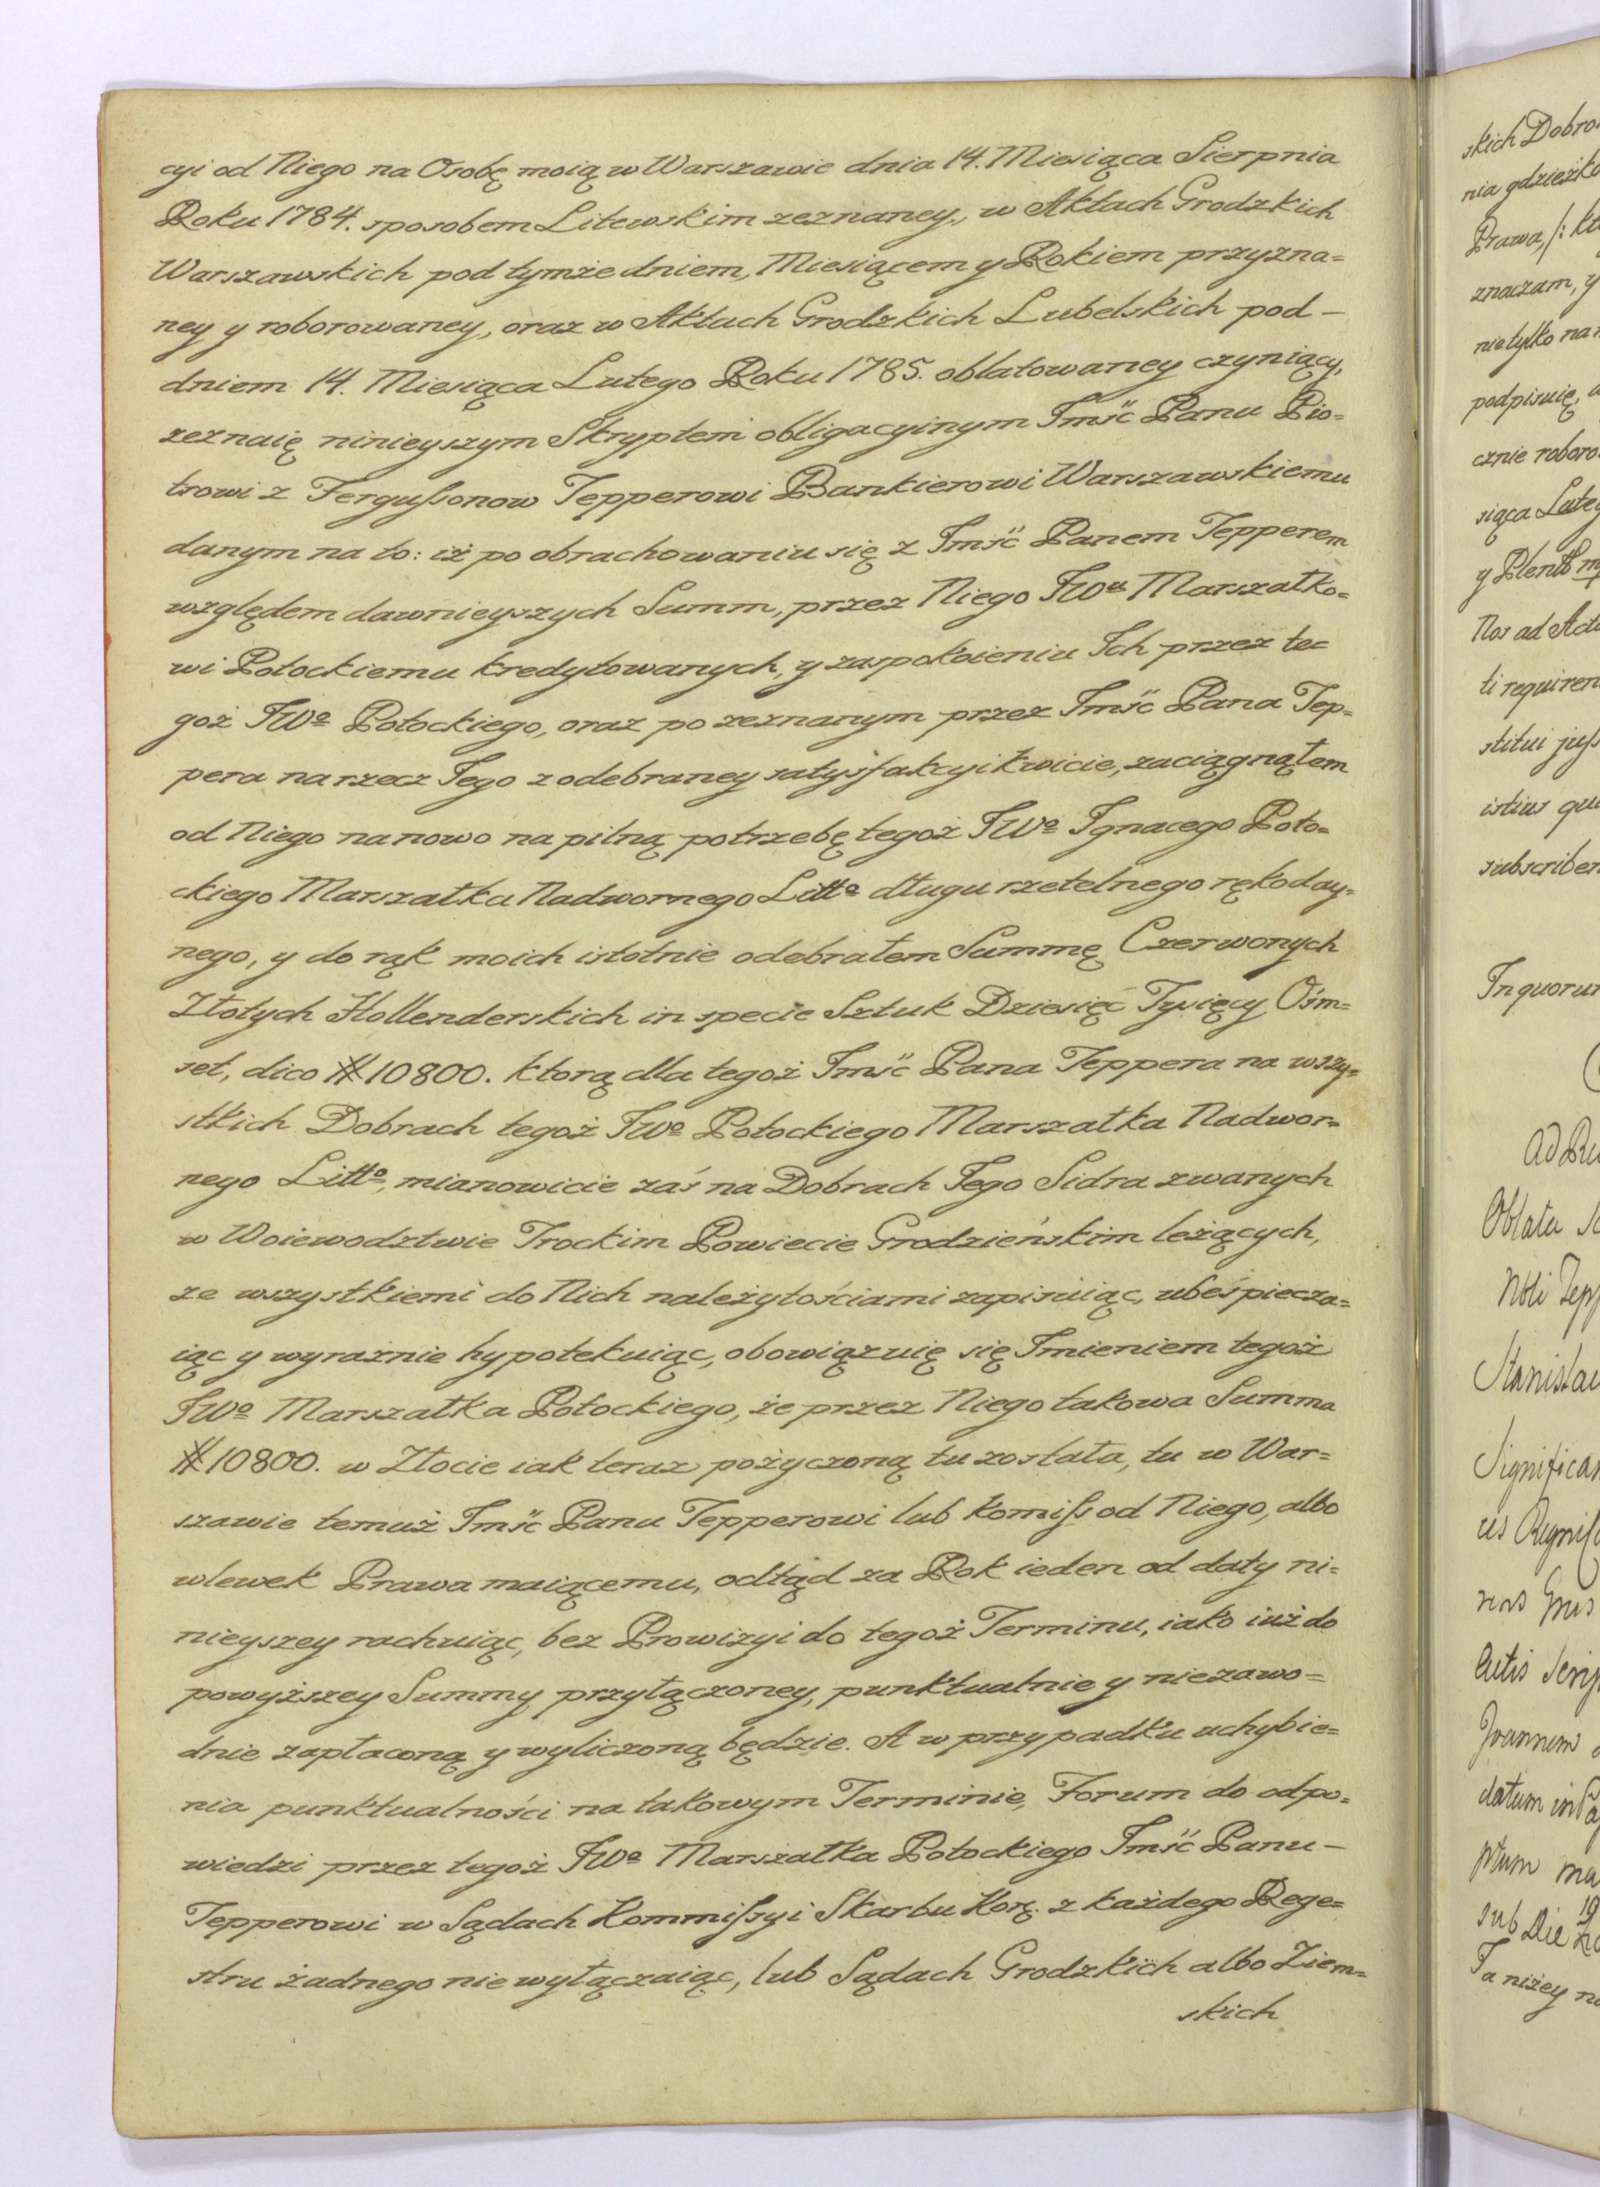 cyi od Niego na Osobę moią w Warszawie dnia 14. Miesiąca Sierpnia
Roku 1784. sposobem Litewskim zeznaney, w Aktach Grodzkich
Warszawskich pod tymże dniem, Miesiącem y Rokiem przyzna=
ney y roborowaney, oraz w Aktach Grodzkich Lubelskich pod –
dniem 14. Miesiąca Lutego Roku 1785. oblatowaney czyniący,
zeznaię ninieyszym Skryptem obligacyinym Jmść Panu Pio=
trowi z Fergussonow Tepperowi Bankierowi Warszawskiemu
danym na to: iż po obrachowaniu się z Jmść Panem Tepperem
względem dawnieyszych Summ, przez Niego JWu Marszałko=
wi Potockiemu kredytowanych, y zaspokoieniu Ich przez te=
goż JWo Potockiego, oraz po zeznanym przez Jmść Pana Tep=
pera na rzecz Jego z odebraney satysfakcyi kwicie, zaciągnąłem
od Niego na nowo na pilną potrzebę tegoż JWo Ignacego Poto=
ckiego Marszałka Nadwornego Litto długu rzetelnego rękoday=
nego, y do rąk moich istotnie odebrałem Summę Czerwonych
Złotych Hollenderskich in specie Sztuk Dziesięć Tysięcy Ośm=
set, dico # 10800. ktorą dla tegoż Jmść Pana Teppera na wszy=
stkich Dobrach tegoż JWo Potockiego Marszałka Nadwor=
nego Litto, mianowicie zaś na Dobrach Jego Sidra zwanych
w Woiewodztwie Trockim Powiecie Grodzieńskim leżących,
ze wszystkiemi do Nich należytościami zapisuiąc, ubeśpiecza=
iąc y wyraznie hypotekuiąc, obowiązuię się Jmieniem tegoż
JWo Marszałka Potockiego, że przez Niego takowa Summa
# 10800. w Złocie iak teraz pożyczoną tu została, tu w War=
szawie temuż Jmść Panu Tepperowi lub komiss od Niego, albo
wlewek Prawa maiącemu, odtąd za Rok ieden od daty ni=
nieyszey rachuiąc, bez Prowizyi do tegoż Terminu, iako iuż do
powyższey Summy przyłączoney, punktualnie y niezawo=
dnie zapłaconą y wyliczoną będzie. A w przypadku uchybie=
nia punktualności na takowym Terminie, Forum do odpo=
wiedzi przez tegoż JWo Marszałka Potockiego Jmść Panu –
Tepperowi w Sądach Kommissyi Skarbu Korę. z każdego Rege=
stru żadnego nie wyłączaiąc, lub Sądach Grodzkich albo Ziem=
skich
skich
nia
Prawa,
znaczam, y
nie tylko
podpisuię,
cznie
siąca
y
Nos ad
ti
stitui
istius
Ad
Oblata
Nbli
Significa
datum in
sub Die
Ja niżey